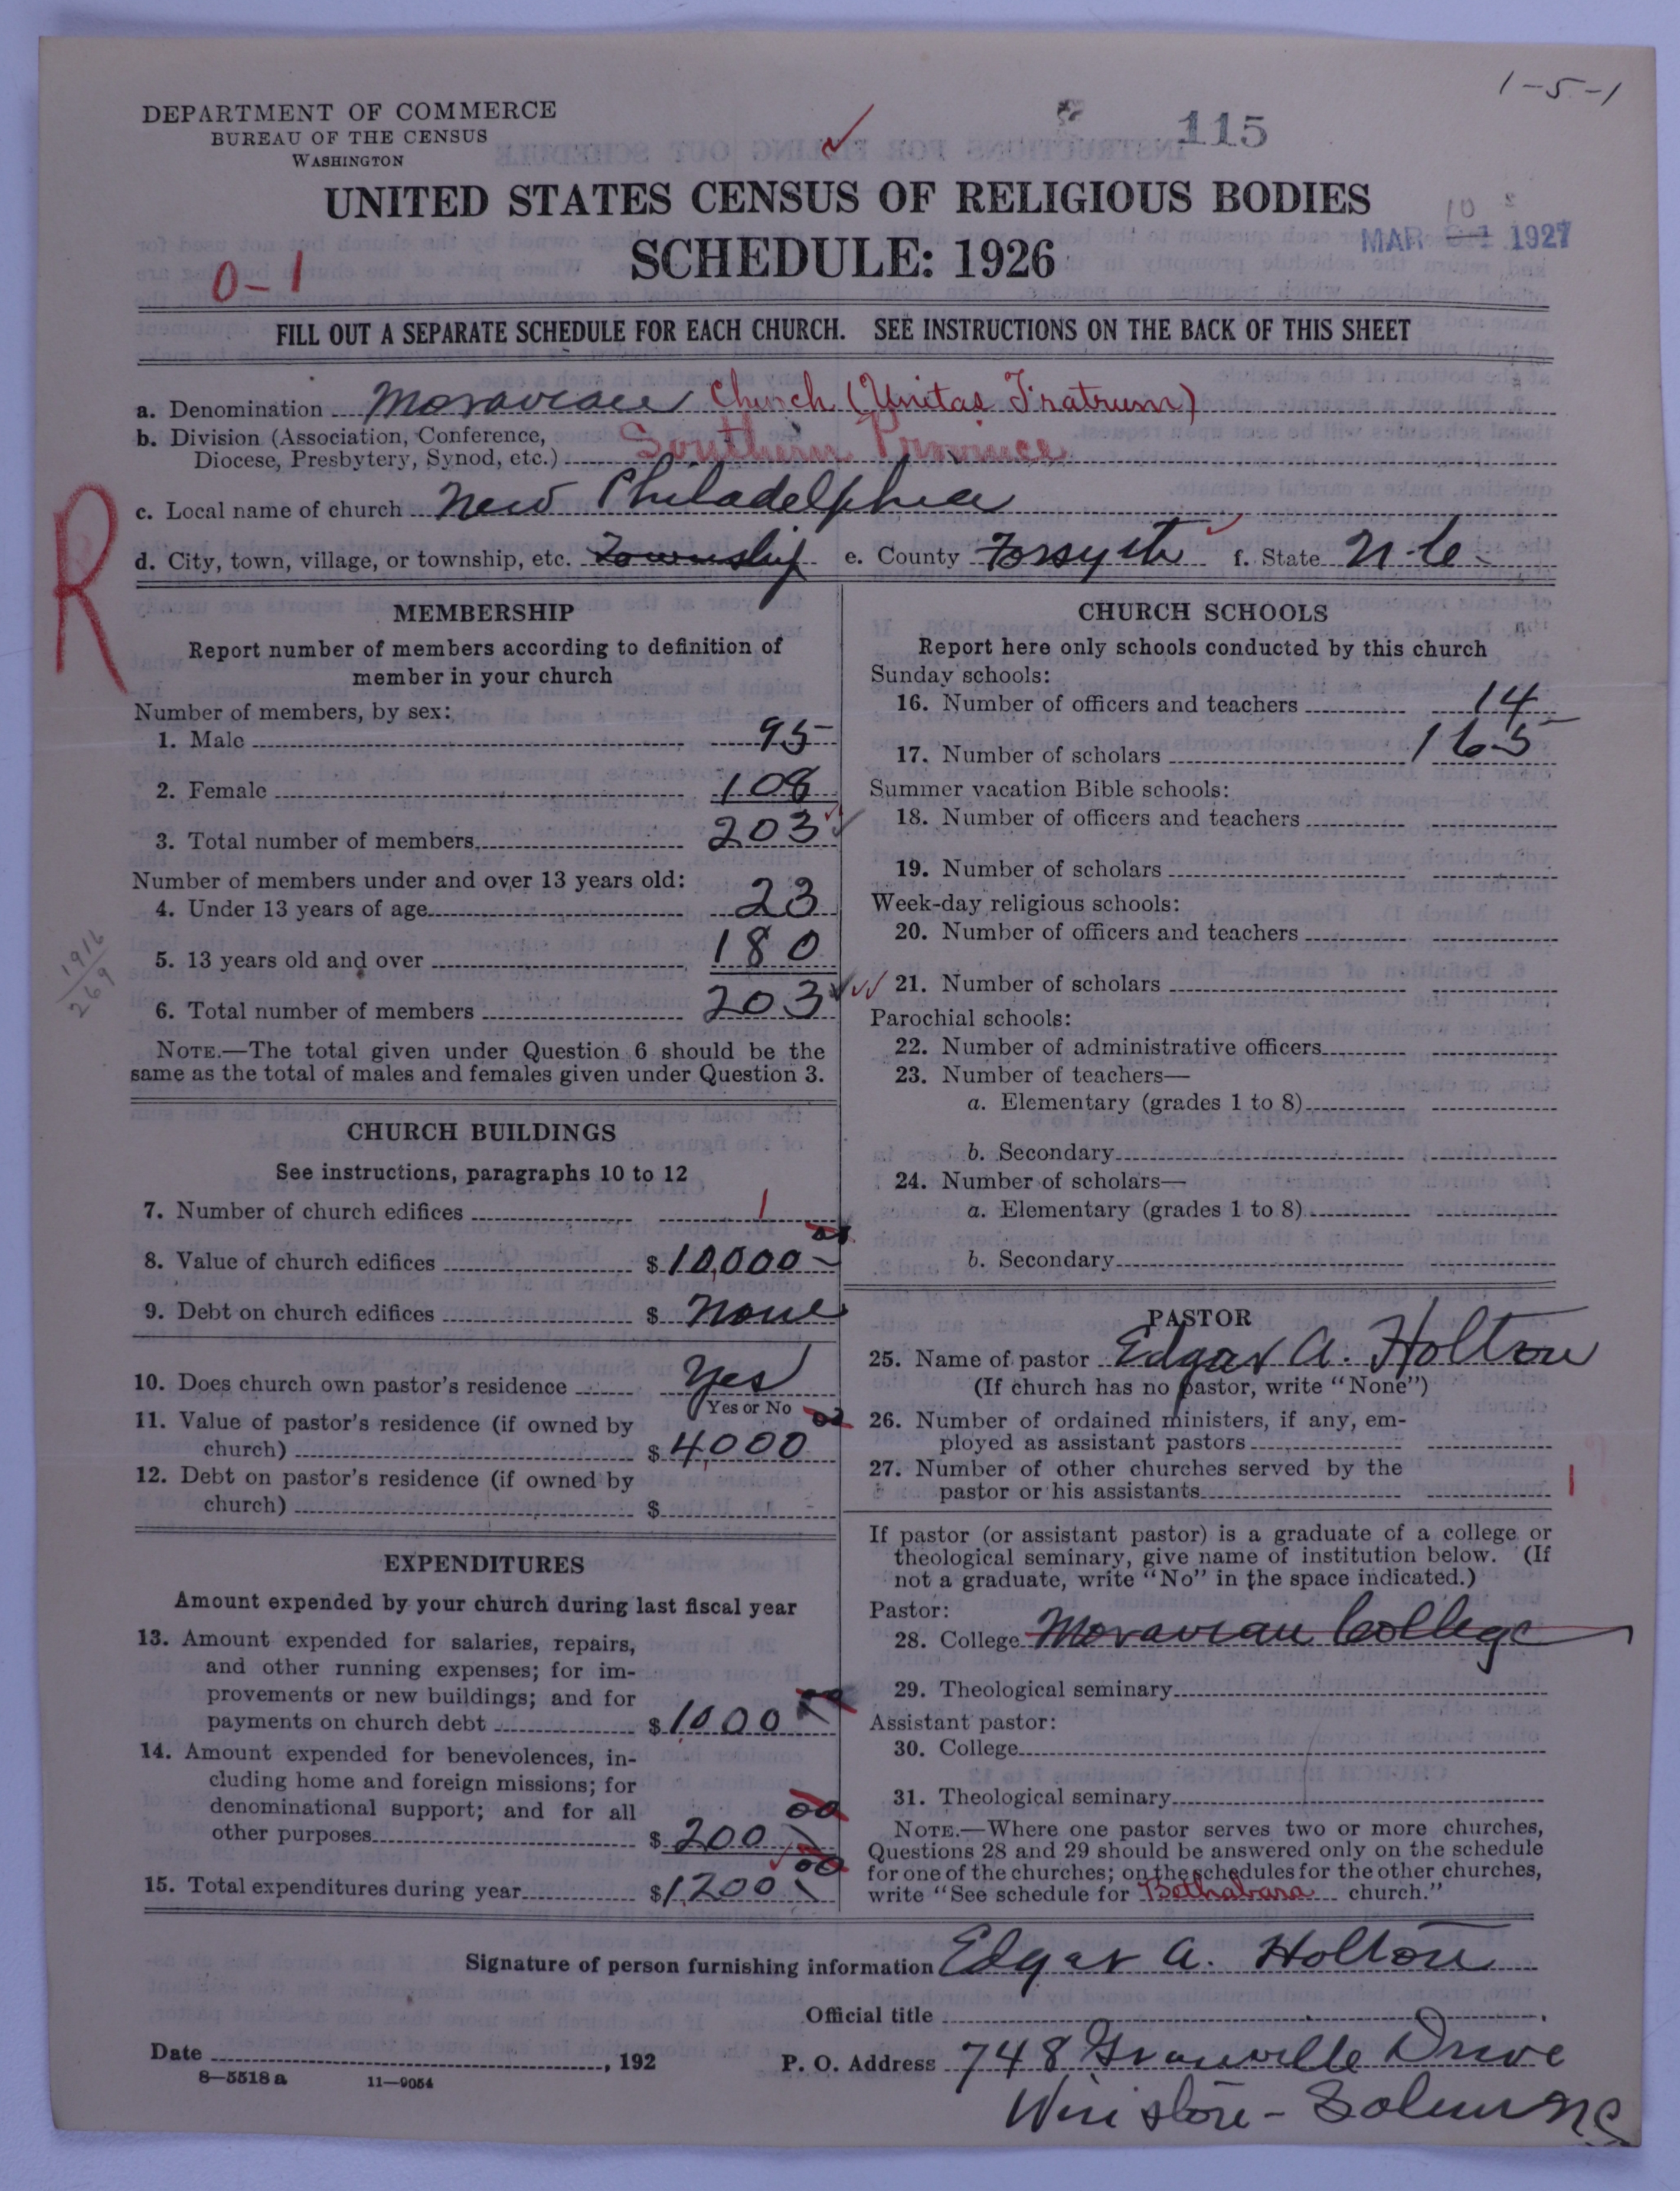 1-5-1
DEPARTMENT OF COMMERCE
BUREAU OF THE CENSUS
WASHINGTON
115
UNITED STATES CENSUS OF RELIGIOUS BODIES
SCHEDULE: 1926
10
MAR 1927
0-1
FILL OUT A SEPARATE SCHEDULE FOR EACH CHURCH. SEE INSTRUCTIONS ON THE BACK OF THIS SHEET
a. Denomination Moravian Church (Unitas Fratrum)
b. Division (Association, Conference,
Diocese, Presbytery, Synod, etc.) Southern Province
c. Local name of church New Philadelphia
R
d. City, town, village, or township, etc. Township e. County Forsyth f. State N.C.
MEMBERSHIP
Report number of members according to definition of
member in your church
Number of members, by sex:
1. Male 95
2. Female 108
3. Total number of members 203
Number of members under and over 13 years old:
4. Under 13 years of age 23
5. 13 years old and over 180
1916
269
6. Total number of members 203
NOTE.—The total given under Question 6 should be the
same as the total of males and females given under Question 3.
CHURCH BUILDINGS
See instructions, paragraphs 10 to 12
7. Number of church edifices 1
8. Value of church edifices $10,000 00
9. Debt on church edifices $ None
10. Does church own pastor's residence Yes
Yes or No
11. Value of pastor's residence (if owned by
church) $4,000 00
12. Debt on pastor's residence (if owned by
church) $
EXPENDITURES
Amount expended by your church during last fiscal year
13. Amount expended for salaries, repairs,
and other running expenses; for im-
provements or new buildings; and for
payments on church debt $1,000 00
14. Amount expended for benevolences, in-
cluding home and foreign missions; for
denominational support; and for all
other purposes $200 00
15. Total expenditures during year $1,200 00
CHURCH SCHOOLS
Report here only schools conducted by this church
Sunday schools:
16. Number of officers and teachers 14
17. Number of scholars 165
Summer vacation Bible schools:
18. Number of officers and teachers
19. Number of scholars
Week-day religious schools:
20. Number of officers and teachers
21. Number of scholars
Parochial schools:
22. Number of administrative officers
23. Number of teachers—
a. Elementary (grades 1 to 8)
b. Secondary
24. Number of scholars—
a. Elementary (grades 1 to 8)
b. Secondary
PASTOR
25. Name of pastor Edgar A. Holton
(If church has no pastor, write "None")
26. Number of ordained ministers, if any, em-
ployed as assistant pastors
27. Number of other churches served by the
pastor or his assistants 1
If pastor (or assistant pastor) is a graduate of a college or
theological seminary, give name of institution below. (If
not a graduate, write "No" in the space indicated.)
Pastor:
28. College Moravian College
29. Theological seminary
Assistant pastor:
30. College
31. Theological seminary
NOTE.—Where one pastor serves two or more churches,
Questions 28 and 29 should be answered only on the schedule
for one of the churches; on the schedules for the other churches,
write "See schedule for Bethabara church."
Signature of person furnishing information Edgar A. Holton
Official title
Date , 192
P. O. Address 748 Granville Drive
8—5518a 11—9054
Winston-Salem NC